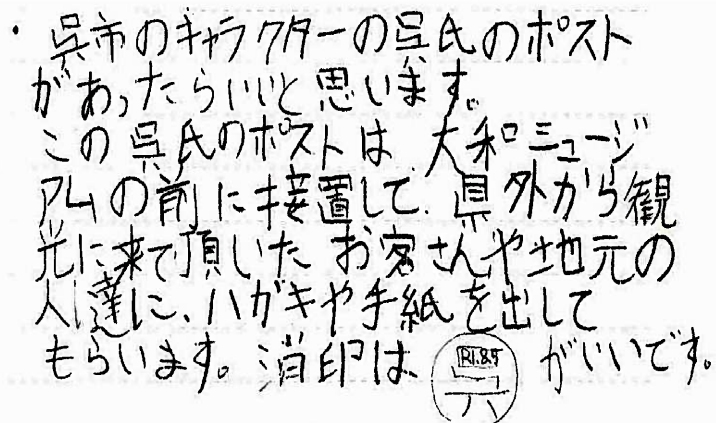 ・呉市のキャラクターの呉氏のポスト
があったらいいと思います。
この呉氏のポストは、大和ミュージ
アムの前に接置して、県外から観
光に来て頂いたお客さんや地元の
人達に、ハガキや手紙を出して
もらいます。消印は R1.8.5 呉 がいいです。